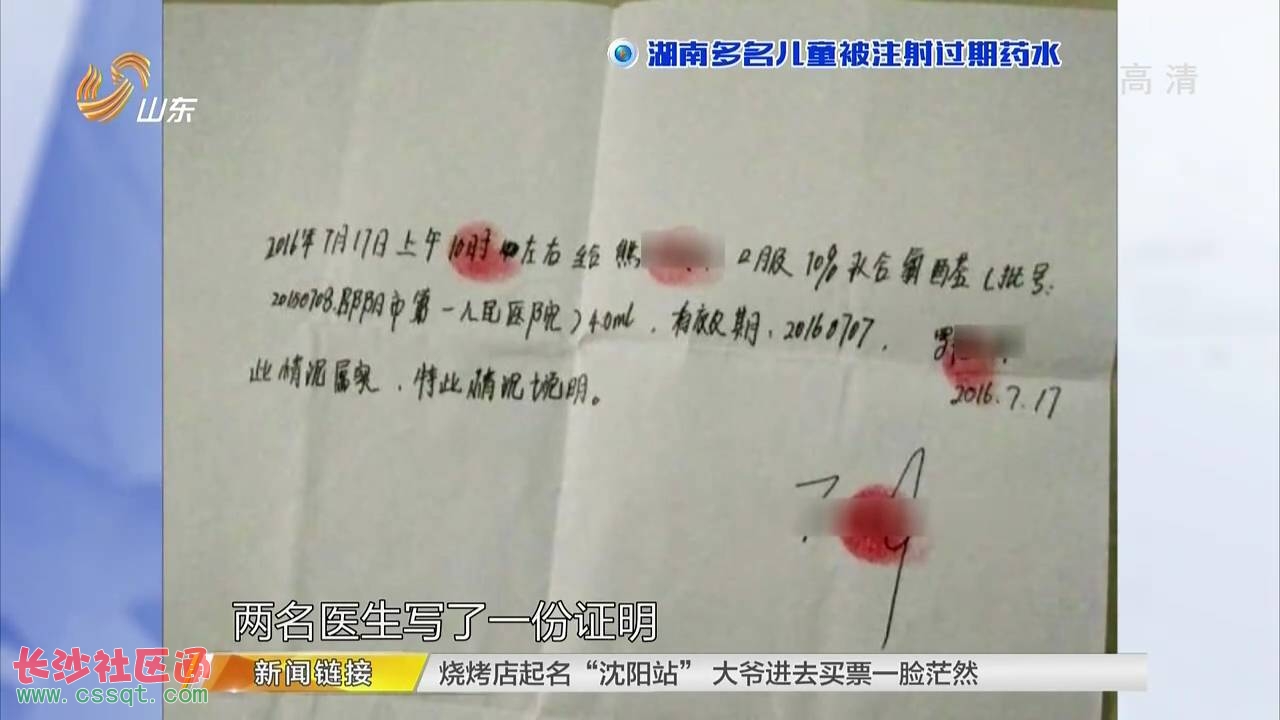 湖南多名儿童被注射过期药水
高清
山东
2016年7月17日上午10时 左右给熊 口服10%水合氯醛基(批号:
20150708.邵阳市第一人民医院)40ml,有效期:20160707.
罗
此情况属实,特此情况说明。
2016.7.17
两名医生写了一份证明
长沙社区通
www.cssqt.com
新闻链接
烧烤店起名“沈阳站” 大爷进去买票一脸茫然